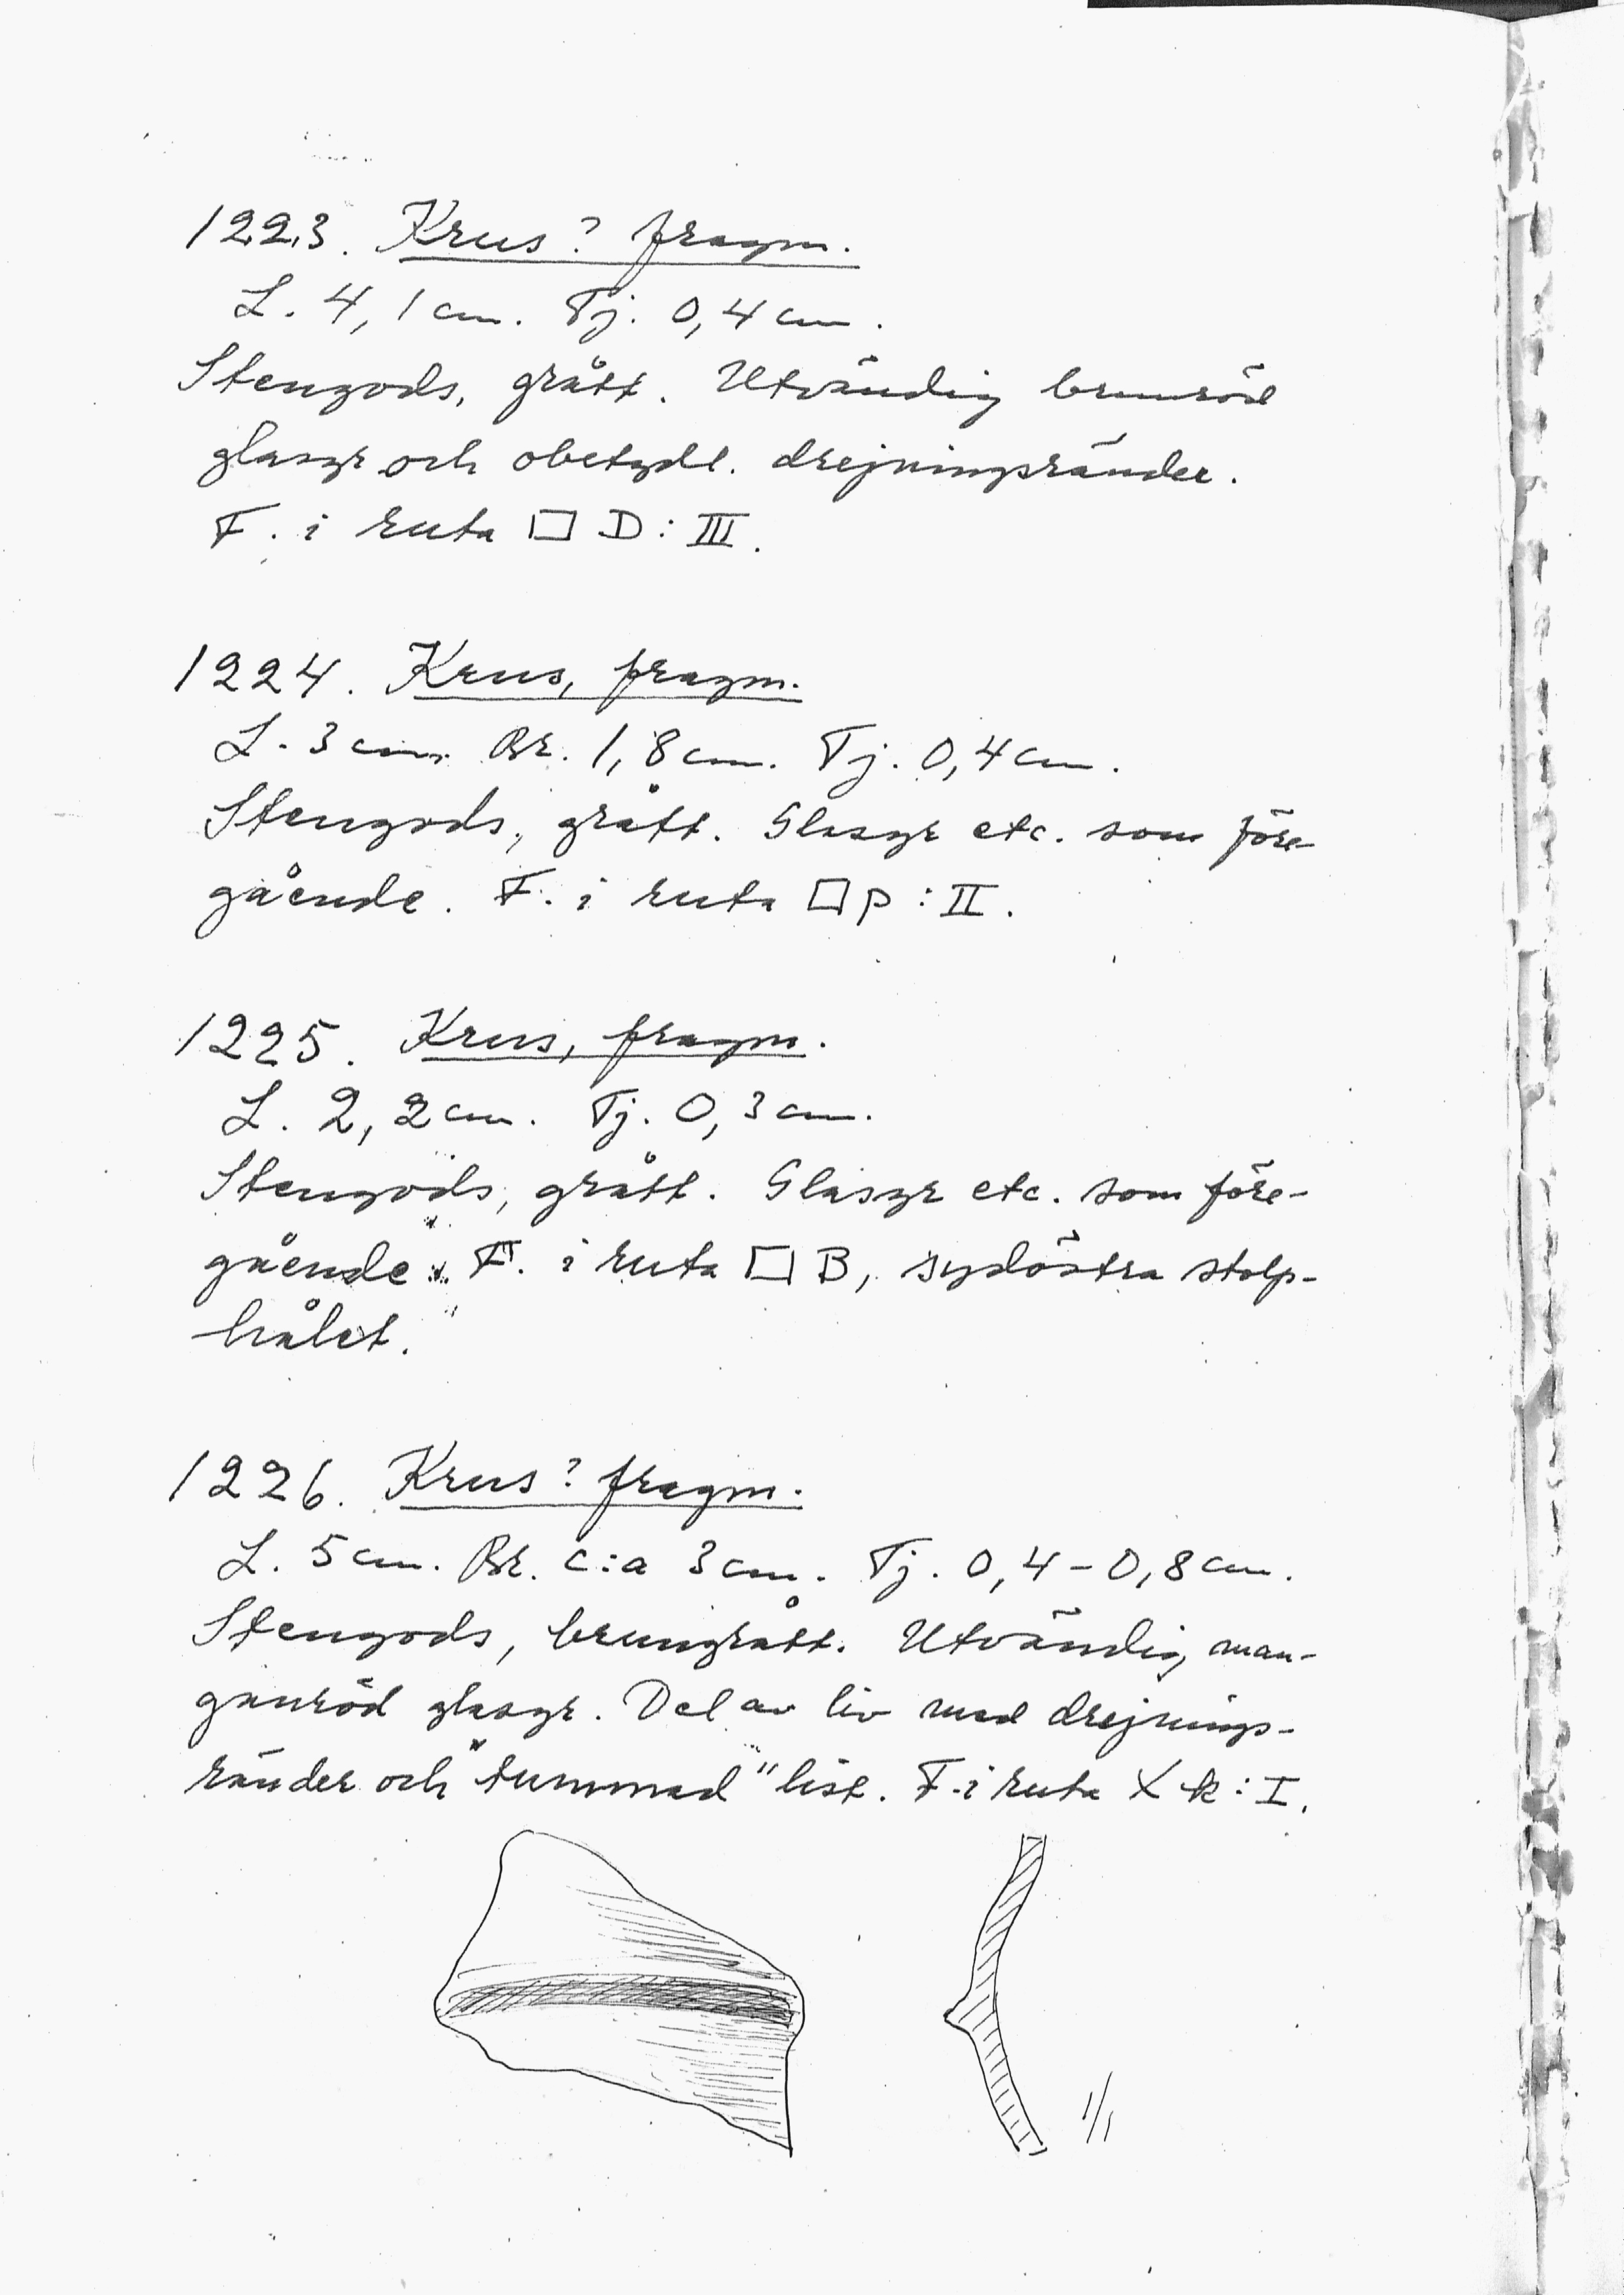 1223. Krus? fragm.
L. 4,1 cm. Tj. 0,4 cm.
Stengods, grått. Utvändig brunröd
glasyr och obetydl. drejningsränder.
F. i ruta □ D: III.
1224. Krus, fragm.
L. 3 cm. Br. 1,8 cm. Tj. 0,4 cm.
Stengods, grått. Glasyr etc. som före-
gående. F. i ruta □ p: II.
1225. Krus, fragm.
L. 2,2 cm. Tj. 0,3 cm.
Stengods, grått. Glasyr etc. som före-
gående. F. i ruta □ B, sydöstra stolp-
hålet.
1226. Krus? fragm.
L. 5 cm. Br. c:a 3 cm. Tj. 0,4-0,8 cm.
Stengods, brungrått. Utvändig man-
ganröd glasyr. Del av liv med drejnings-
ränder och "tummad" list. F. i ruta X k: I.
1/1